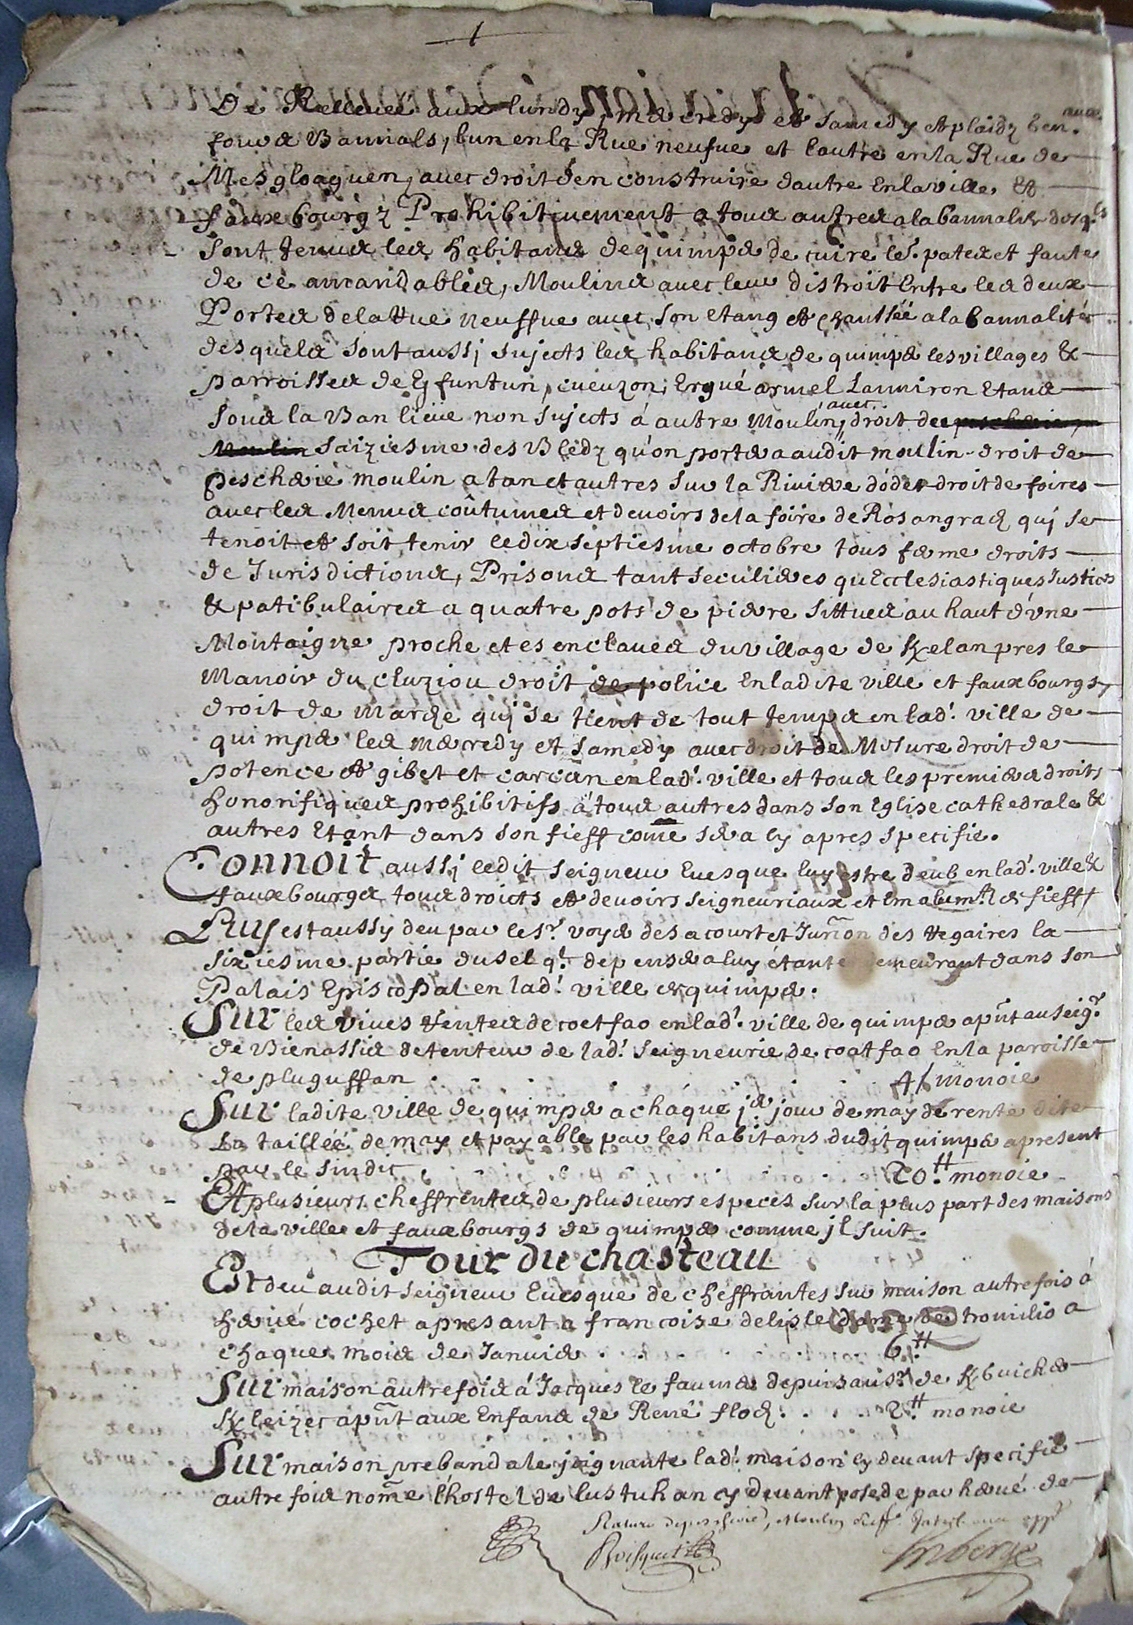 1
De Relleveé aux lundy, mercredy et Samedy et plaidz
fours Bannals, lun en la Rue neufue et lautre en la Rue de
Mesgloaguen, avec droit d'en construire dautre En la ville, et
fauxbourgz Prohibitivement a tous autres a la bannalité desqls
sont tenus les habitans de quimper de cuire les pates et faute
de ce amandables, Moulins avec leur distroit Entre les deux
Portes de la Rue neuffue avec son Etang et chaussée a la bannalité
desquels sont aussj sujects les habitans de quimper les villages &
parroisses de cueuzon, Ergué armel Lanniron Etans
sous la Ban lieue non sujects á autre Moulin, avec droit de
saiziesme des Bledz qu'on porte audit moulin droit de
pescherie moulin a tan et autres sur la Riviere dódet droit de foires
avec les Menus coûtumes et devoirs de la foire de qui se
tenoit et soit tenir le dix septiesme octobre tous ferme droits
de Jurisdictions, Prisons tant seculieres qu'Ecclesiastiques Justices
& patibulaires a quatre pots de pierre sittues au haut d'vne
Montaigne proche et es enclaves du village de Kelan pres le
Manoir du cluziou droit de police En ladite ville et fauxbourgs,
droit de marche quj se tient de tout temps en lad. ville de
quimper les mercredy et samedy avec droit de Mesure droit de
potence et gibet et carcan en lad. ville et tous les premiers droits
honorifiques prohibitifs á tous autres dans son Eglise cathedrale &
autres Etant dans son fieff come sera cy apres specifie.
Connoit aussj ledit seigneur Evesque luy estre deub en lad. ville &
fauxbourgs tous droicts et devoirs seigneuriaux et fieff
Luy est aussy deu par le sr. voyer de sa court et Juron des Regaires la
sixiesme partie du sel depensera luy étante demeurant dans son
Palais Episcopal en lad. ville de quimper.
Sur les vives Rentes de coetfao en lad. ville de quimper apnt au seigr.
de Bienassis detenteur de lad. seigneurie de coatfao En la paroisse
de pluguffan . . . . monoie
Sur ladite ville de quimper a cháque jer jour de may de rente dite
La taillée de may et payable par les habitans dudit quimper apresent
par le sindic . . . 20tt monoie
Et plusieurs cheffrentes de plusieurs especes sur la plus part des maisons
de la ville et fauxbourgs de quimper comme jl suit.
Tour du chasteau
Est deu audit seigneur Evesque de cheffrantes sur maison autrefois á
hervé cochet apresant a francoise delisle dame de a
chaque mois de Janvier . . . 6tt
Sur maison autrefois á Jacques le faumer depuis au sr. de
Kleizec apnt aux Enfans de René floch . . . 2tt monoie
Sur maison prebandale joignante lad. maison cy devant specifie
autrefois nome l'hostel de lustuhan cy devant posede par hervé de
Boisquet